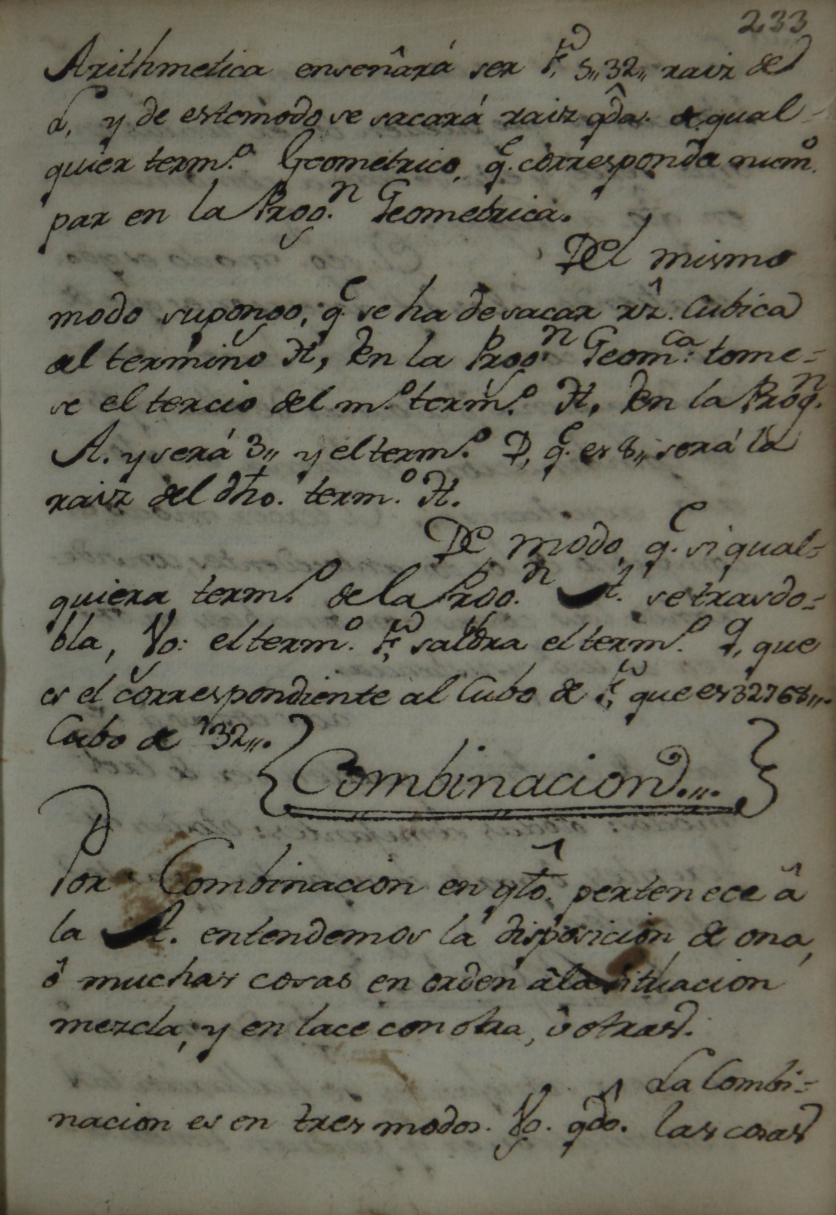 233
Arithmetica enseñará ser F, 5,, 32,, raiz de
L, y de este modo se sacará raiz qda. de qual-
quier term.º Geometrico, q.e corresponda num.º
par en la Prog.n Geometrica.
Del mismo
modo supongo, q.e se ha de sacar rz. Cubica
al termino H, En la Prog.n Geom.ca: tome-
se el tercio del m.º term.º H, En la Prog.n
A. y será 3,, y el term.º D, q.e es 8,, será la
raiz del dho. term.º H.
De modo q.e si qual-
quiera term.º de la Prog.n A. se trasdo-
bla, Vg: el term.º F, saldra el term.º Q, que
es el correspondiente al Cubo de F, que es 32768,,.
Cubo de 32,,.
{Combinacion...}
Por Combinacion en qto. pertenece â
la A. entendemos la disposicion de una,
ô muchas cosas en orden âla situacion
mezcla, y en lace con otra, û otras.
La Combi-
nacion es en tres modos. Vg. qdo. las cosas